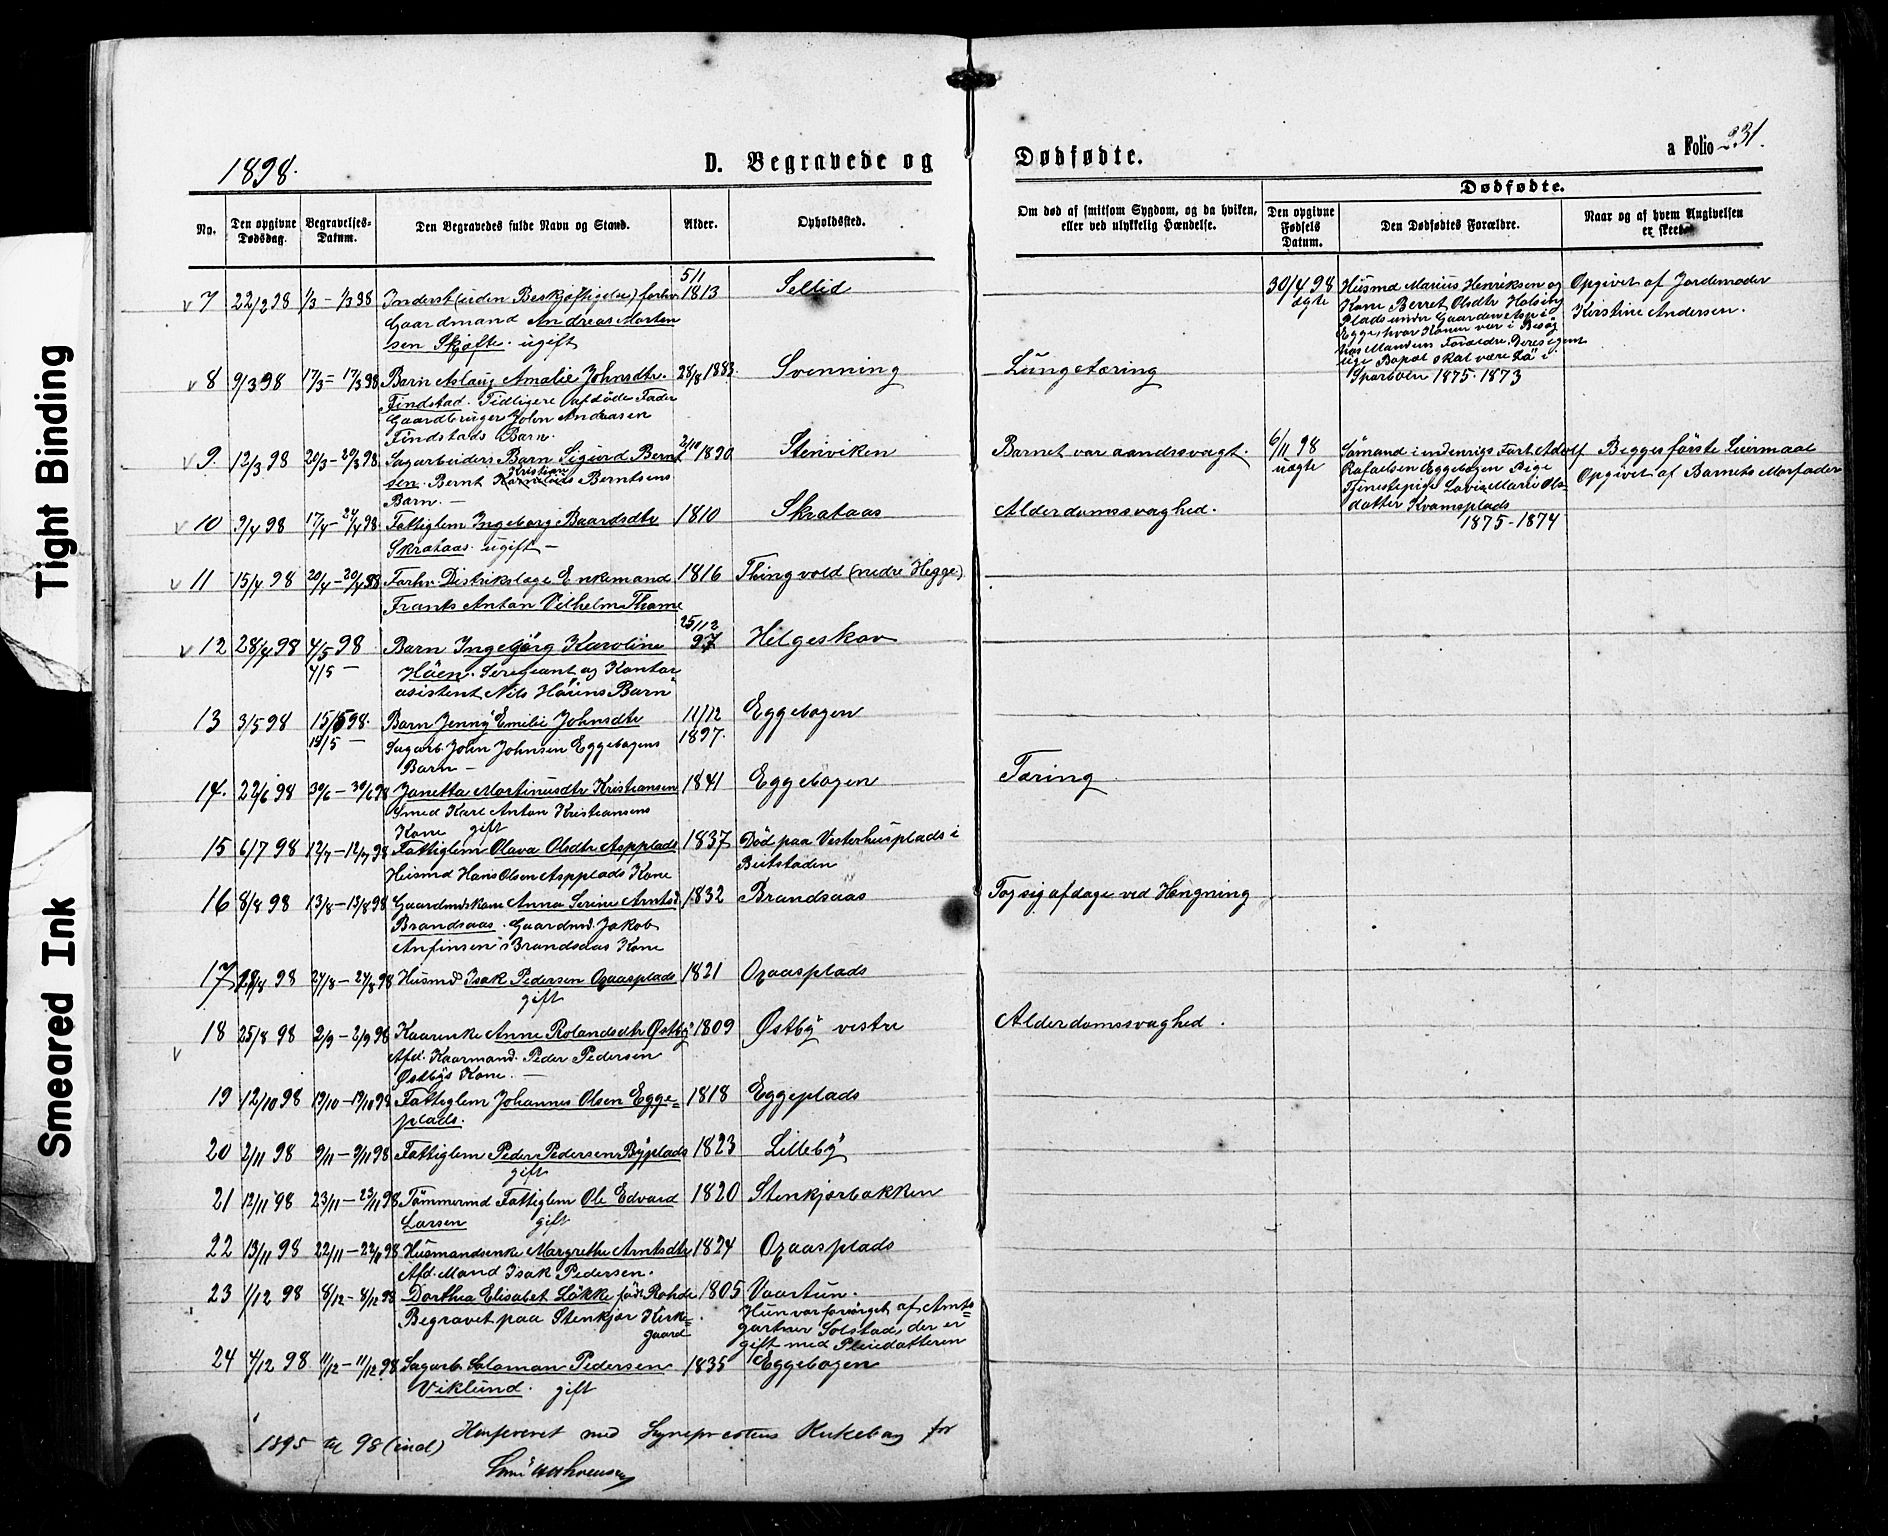 Tight Binding
Smeared Ink
1898.
D. Begravede og Dødfødte.
a Folio 231.
Dødfødte.
No.
Den opgivne Dødsdag.
Begravelses-Datum.
Den Begravedes fulde Navn og Stand.
Alder.
Opholdssted.
Om død af smitsom Sygdom, og da hvilken, eller ved ulykkelig Hændelse.
Den opgivne Fødsels Datum.
Den Dødfødtes Forældre.
Naar og af hvem Angivelsen er skeet.
v 7 22/2 98 1/3 – 1/3 98 Inderst (uden Beskjæftigelse) forhv 5/11 1813 Sellid
Gaardmand Andreas Morten
sen Skjefte. ugift
30/4 98 ægte
Husmd Marius Henriksen og
Kone Berret Olsdtr Halsing
Plads under Gaarden Asp i
Egge, hvor Konen var i Besøg
hos Mandens Forældre. Deres egent
lige Bopæl skal være Lø i
Sparboen 1875. 1873
Opgivet af Jordemoder
Kirstine Andersen.
v 8 9/3 98 17/3 = 17/3 98 Barn Aslaug Amalie Johnsdtr. 28/8 1883. Svenning Lungetæring
Findstad. Tidligere afdøde Fader
Gaardbruger John Andreasen
Findstads Barn.
v 9. 12/3 98 20/3 – 20/3 98 Sagarbeiders Barn Sigurd Bernt 2/10 1890 Stenviken Barnet var aandssvagt.
sen. Bernt Kristian Berntsens
Barn. –
6/11 98 uægte
Sømand i indenrigs Fart Adolf
Rafaelsen Eggebogen Pige
Tjenestepige Lovise Marie Ols-
datter Kvamsplads
1875 – 1874
Begges første Leiermaal
Opgivet af Barnets Morfader
v 10 9/4 98 17/4 – 24/4 98. Fattiglem Ingeborg Baardsdtr 1810 Skrataas Alderdomssvaghed.
Skrataas. ugift –
v 11 15/4 98 20/4 – 20/4 98 Forhv. Distrikslæge Enkemand 1816 Thingvold (nedre Hegge)
Frants Anton Vilhelm Thome
v 12 28/4 98 4/5 98 Barn Ingeborg Karoline 25/12 97 Helgeskov
4/5 – Höen. Seregeant og Kontor
asistent Nils Höens Barn
13 3/5 98 15/5 98. Barn Jenny Emelie Johnsdtr 11/12 1897. Eggebogen
15/5 – Sagarb. John Johnsen Eggebogens
Barn –
14. 22/6 98 30/6 – 30/6 98 Janetta Martinusdtr Kristiansen 1841 Eggebogen Tæring
Smed Karl Anton Kristiansens
Kone gift
15 6/7 98 12/7 – 12/7 98 Fattiglem Olava Olsdtr Aspplads 1837 Død paa Vesterhusplads i
Husmd Hans Olsen Aspplads Kone Beitstaden
16 8/8 98 13/8 – 13/8 98 Gaardmdskone Anna Serine Arntsd 1832 Brandsaas Tog sig af dage ved Hængning
Brandsaas. Gaardmd. Jakob
Anfinsen's Brandsaas Kone
17 98 27/8 – 27/8 98 Husmd Isak Pedersen Oxaasplads 1821 Oxaasplads
gift
18 25/8 98 2/9 – 2/9 98 Kaarenke Anne Rolandsdtr Østby 1809 Østby vestre Alderdomssvaghed.
v Afd. Kaarmand. Peder Pedersen
Østbys Kone. –
19 12/10 98 19/10 – 19/10 98 Fattiglem Johannes Olsen Egge= 1818 Eggeplads
plads.
20 2/11 98 9/11 – 9/11 98 Fattiglem Peder Pedersen Byplads 1823 Lilleby
gift
21 12/11 98 23/11 – 23/11 98 Tömmermd Fattiglem Ole Edvard 1820 Stenkjærbakken
Larsen gift
22 13/11 98 22/11 – 22/11 98 Husmandsenke Margrethe Arntsdtr 1824 Oxaasplads
Afd. Mand Isak Pedersen.
23 1/12 98 8/12 – 8/12 98 Dorthea Elisabet Lökke født Rohde 1805 Vaartun.
Begravet paa Stenkjær Kirk=
gaard
Hun var forsørget af Amts=
gartner Solstad, der er
gift med Pleiedatteren
24 4/12 98 11/12 – 11/12 98 Sagarb. Salaman Pedersen 1835 Eggebogen
Viklund. gift
1895 til 98 (incl) Konfereret med Sognepræstens Kirkebog for